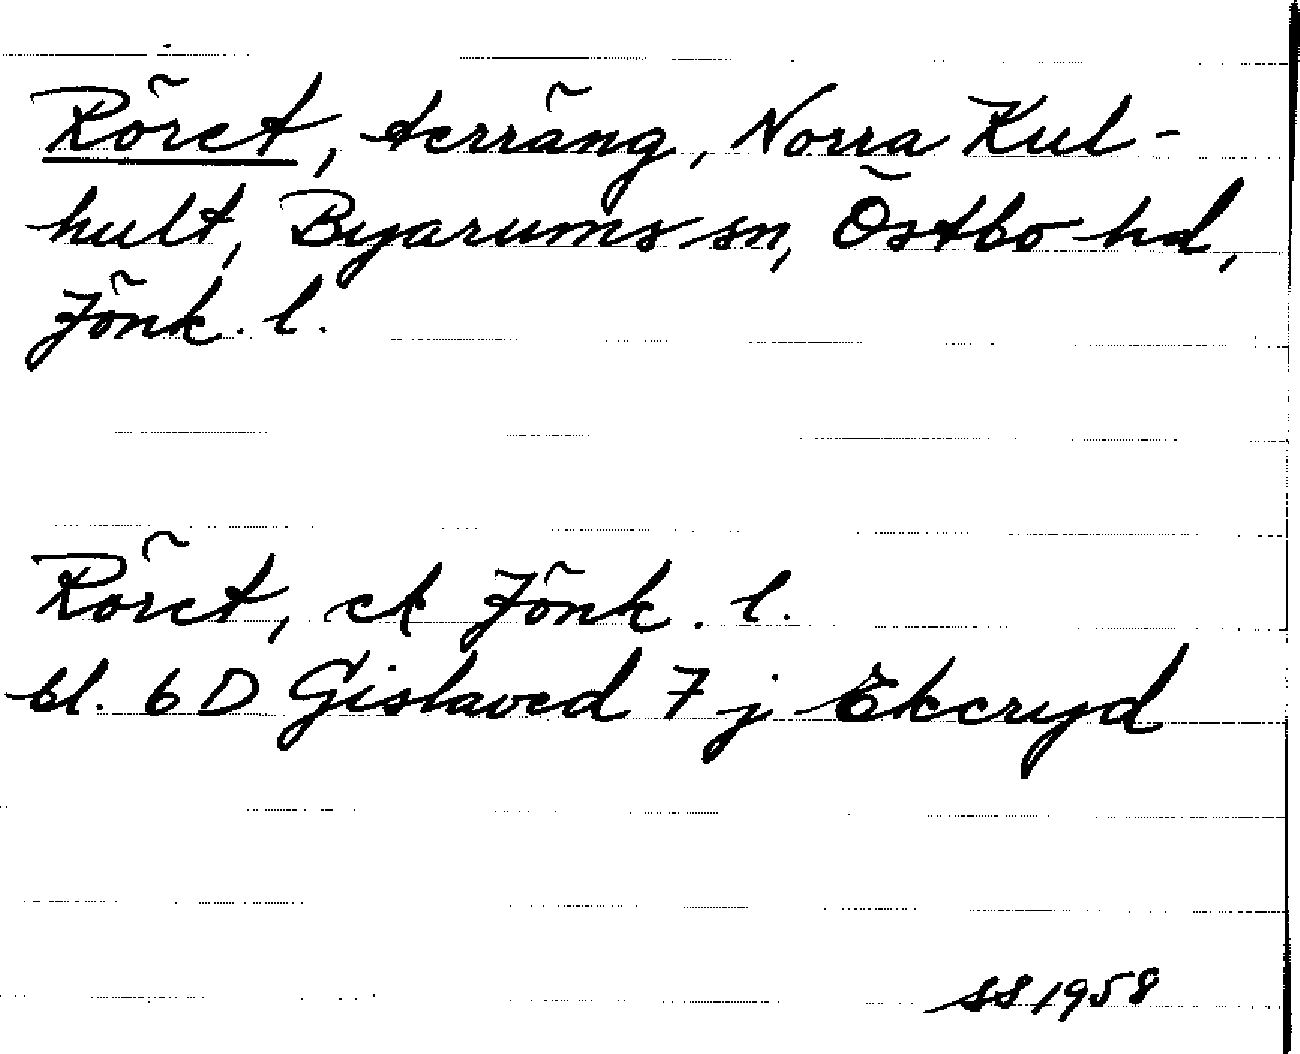 Röret, terräng, Norra Kul-
hult, Byarums sn, Östbo hd,
Jönk. l.
Röret, ek Jönk. l.
bl. 6 D Gislaved 7 j Ekeryd
SS 1958